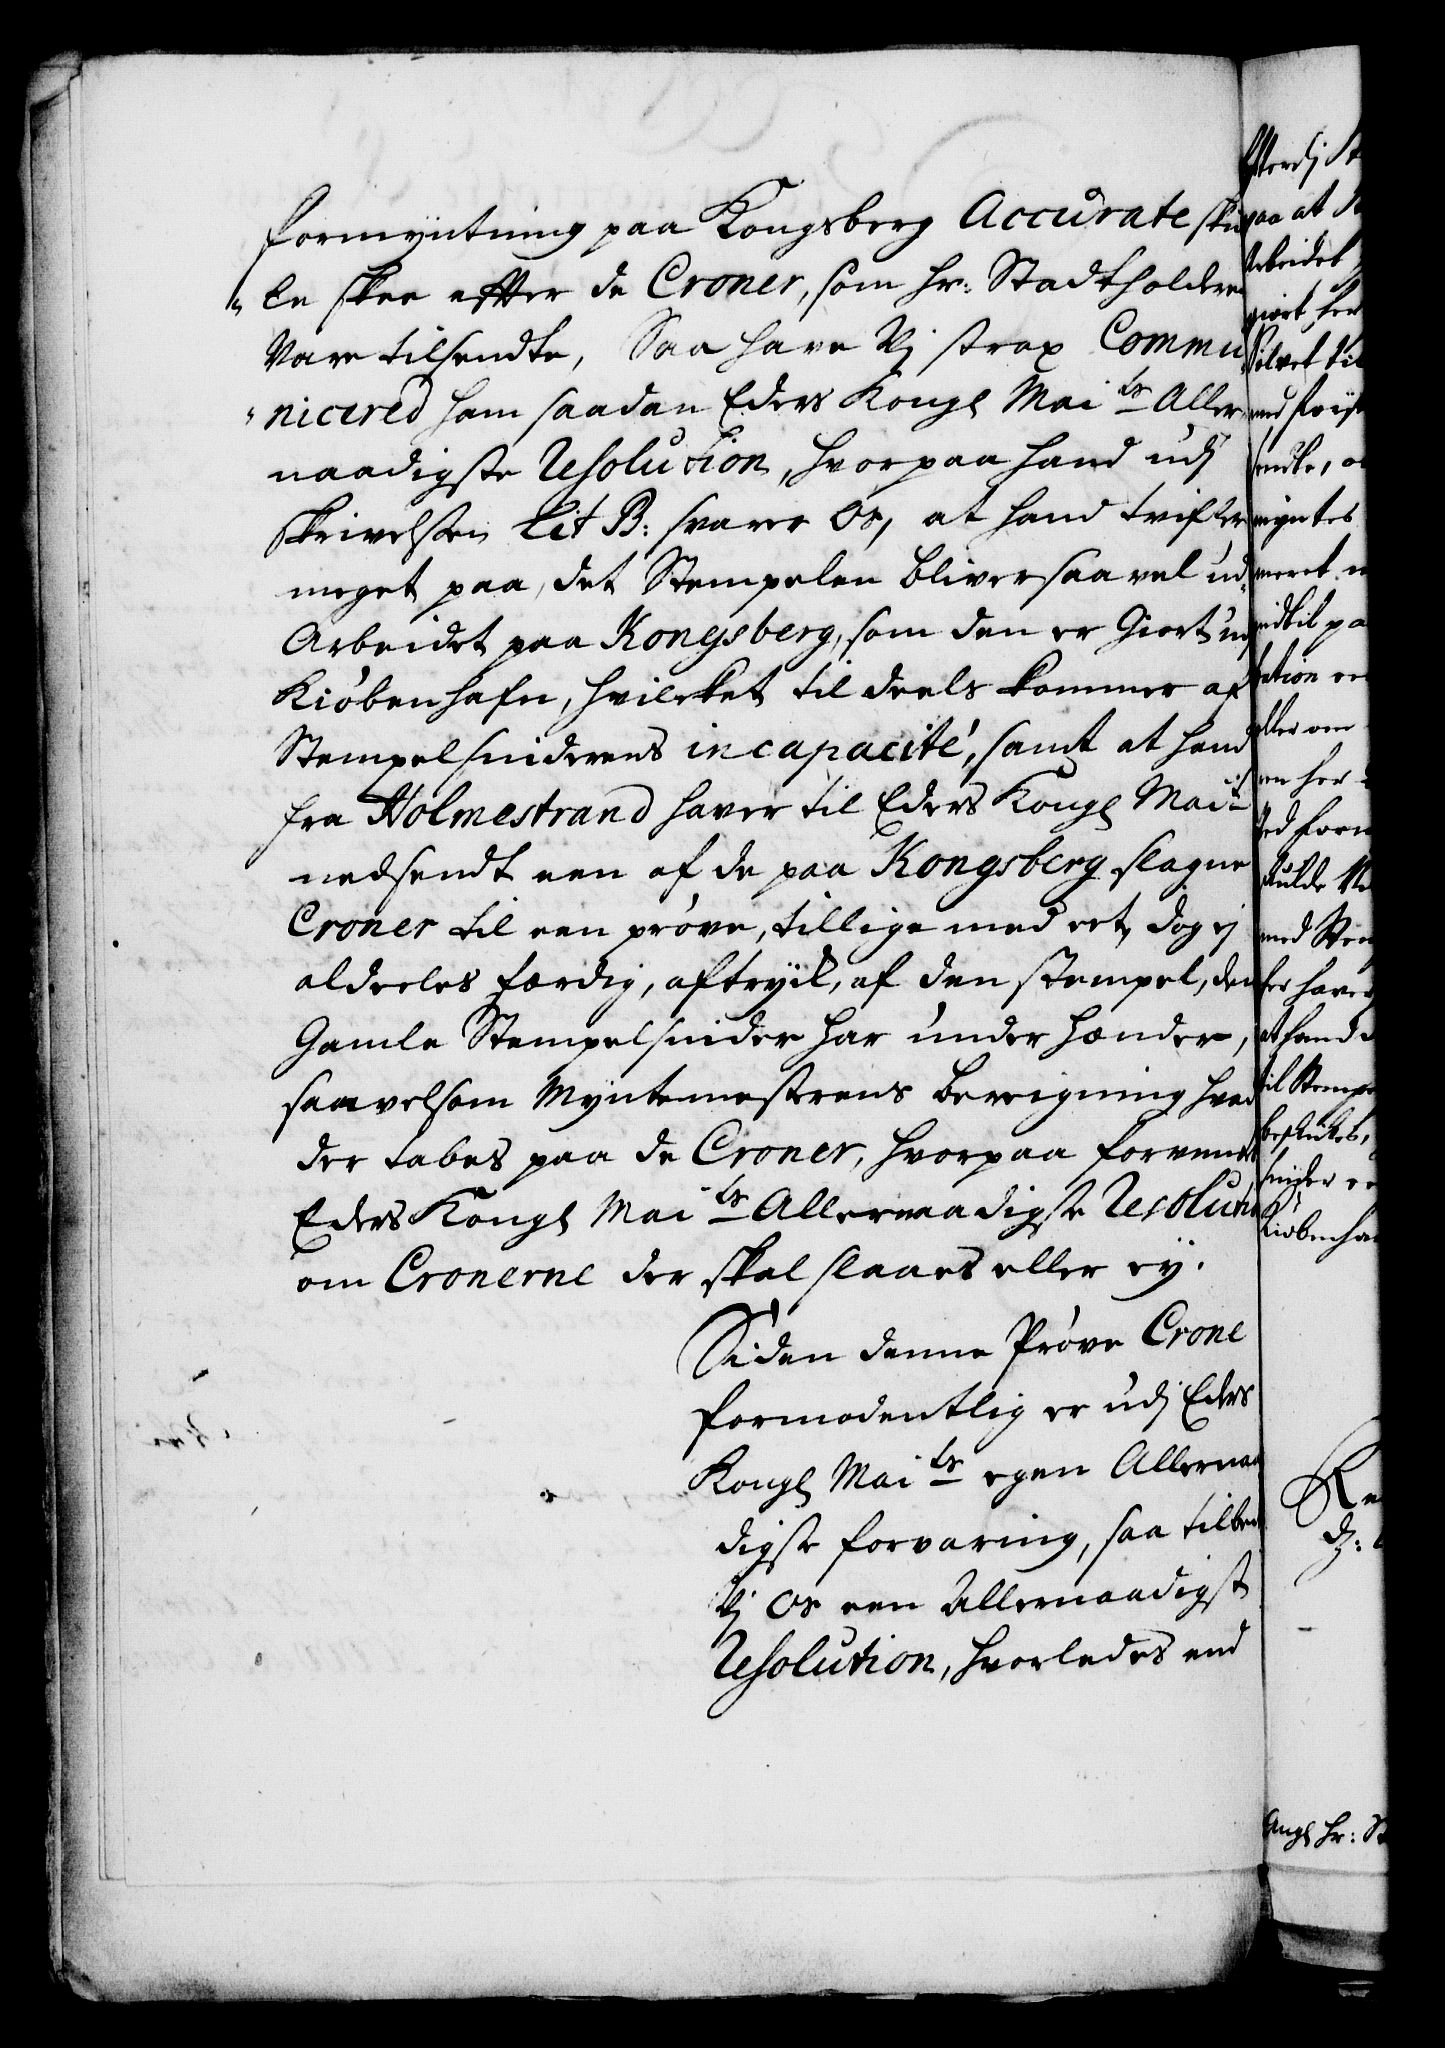 formyntning paa Kongsberg Accurate sku
le skee effter de Croner, som hr: Stadtholderen
vare tilsendte, Saa have Vj strax Commu
nicered ham saadan Eders Kongl Mai ts Aller
naadigste Resolution, hvorpaa hand udj
skrivelsen Lit B: svarer Os, at hand tvifler
meget paa, det Stempelen bliver saa vel ud
Arbeidet paa Kongsberg, som den er Giort ud
Kiöbenhafn, hvilcket til deels kommer af
Stempelsniderens incapacité, samt at hand
fra Holmestrand haver til Eders Kongl Mait
nedsendt een af de paa Kongsberg slagne
Croner til een pröve, tillige med eet, dog ej
aldeeles færdig, aftryck, af den stempel, den
Gamle Stempelsnider har under hænder,
saavelsom Myntemesterens beregning hvad
der tabes paa de Croner, hvorpaa forvents
Eders Kongl Mai ts Allernaadigste Resolution
om Cronerne der skal slaaes eller ey.
Siden denne Pröve Crone
formodentlig er udj Eders
Kongl Mai ts egen Allernaa
digste forvaring, saa tilbed
Vj Os een Allernaadigst
Resolution, hvorledes end
efterdj
paa at
Arbeidet
giort, her
Sölvet til
sendte,
myntes
meret
tation
eller om
en her
ved form
skulde
med Stem
her haver
at hand
til Stempe
beskicket,
snider
Kiöbenha
Angl hr: St